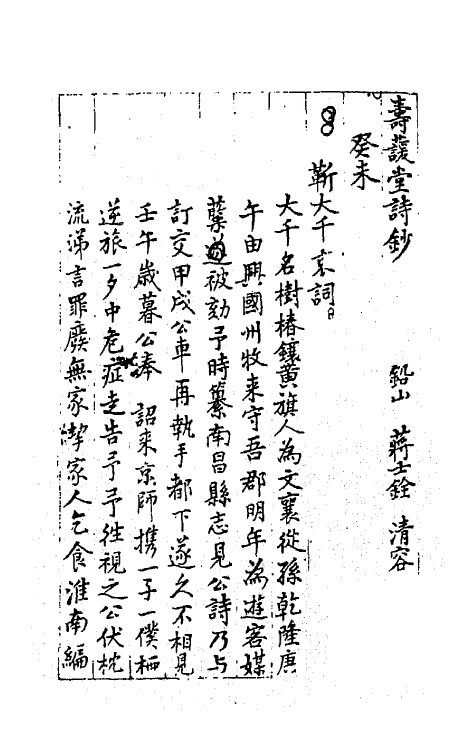 壽萱堂詩鈔 鉛山 蔣士銓 清容
癸未
靳大千哀詞
大千名樹椿鑲黃旗人為文襄從孫乾隆庚
午由興國州牧来守吾郡明年為遊客媒
蘖被劾予時纂南昌縣志見公詩乃与
訂交甲戌公車再執手都下遂久不相見
壬午歲暮公捧 詔来京師携一子一僕栖
逆旅一夕中危症走告予予往視之公伏枕
流涕言罪廢無家挈家人乞食淮南編